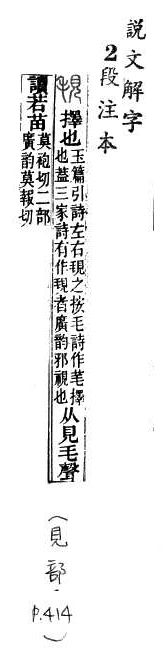 說文解字
2段注本
覒 擇也 玉篇引詩左右覒之按毛詩作芼擇
也蓋三家詩有作覒者廣韵邪視也 从見毛聲
讀若苗 莫袍切二部
廣韵莫報切
(見部. P.414)